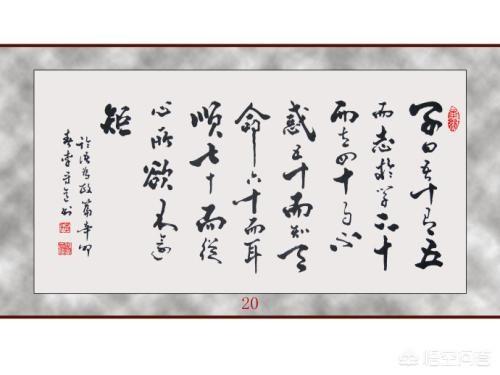 子曰吾十有五
而志於学三十
而立四十而不
惑五十而知天
命六十而耳
順七十而從
心所欲不逾
矩
論語為政篇辛卯
春李守
20
悟空问答